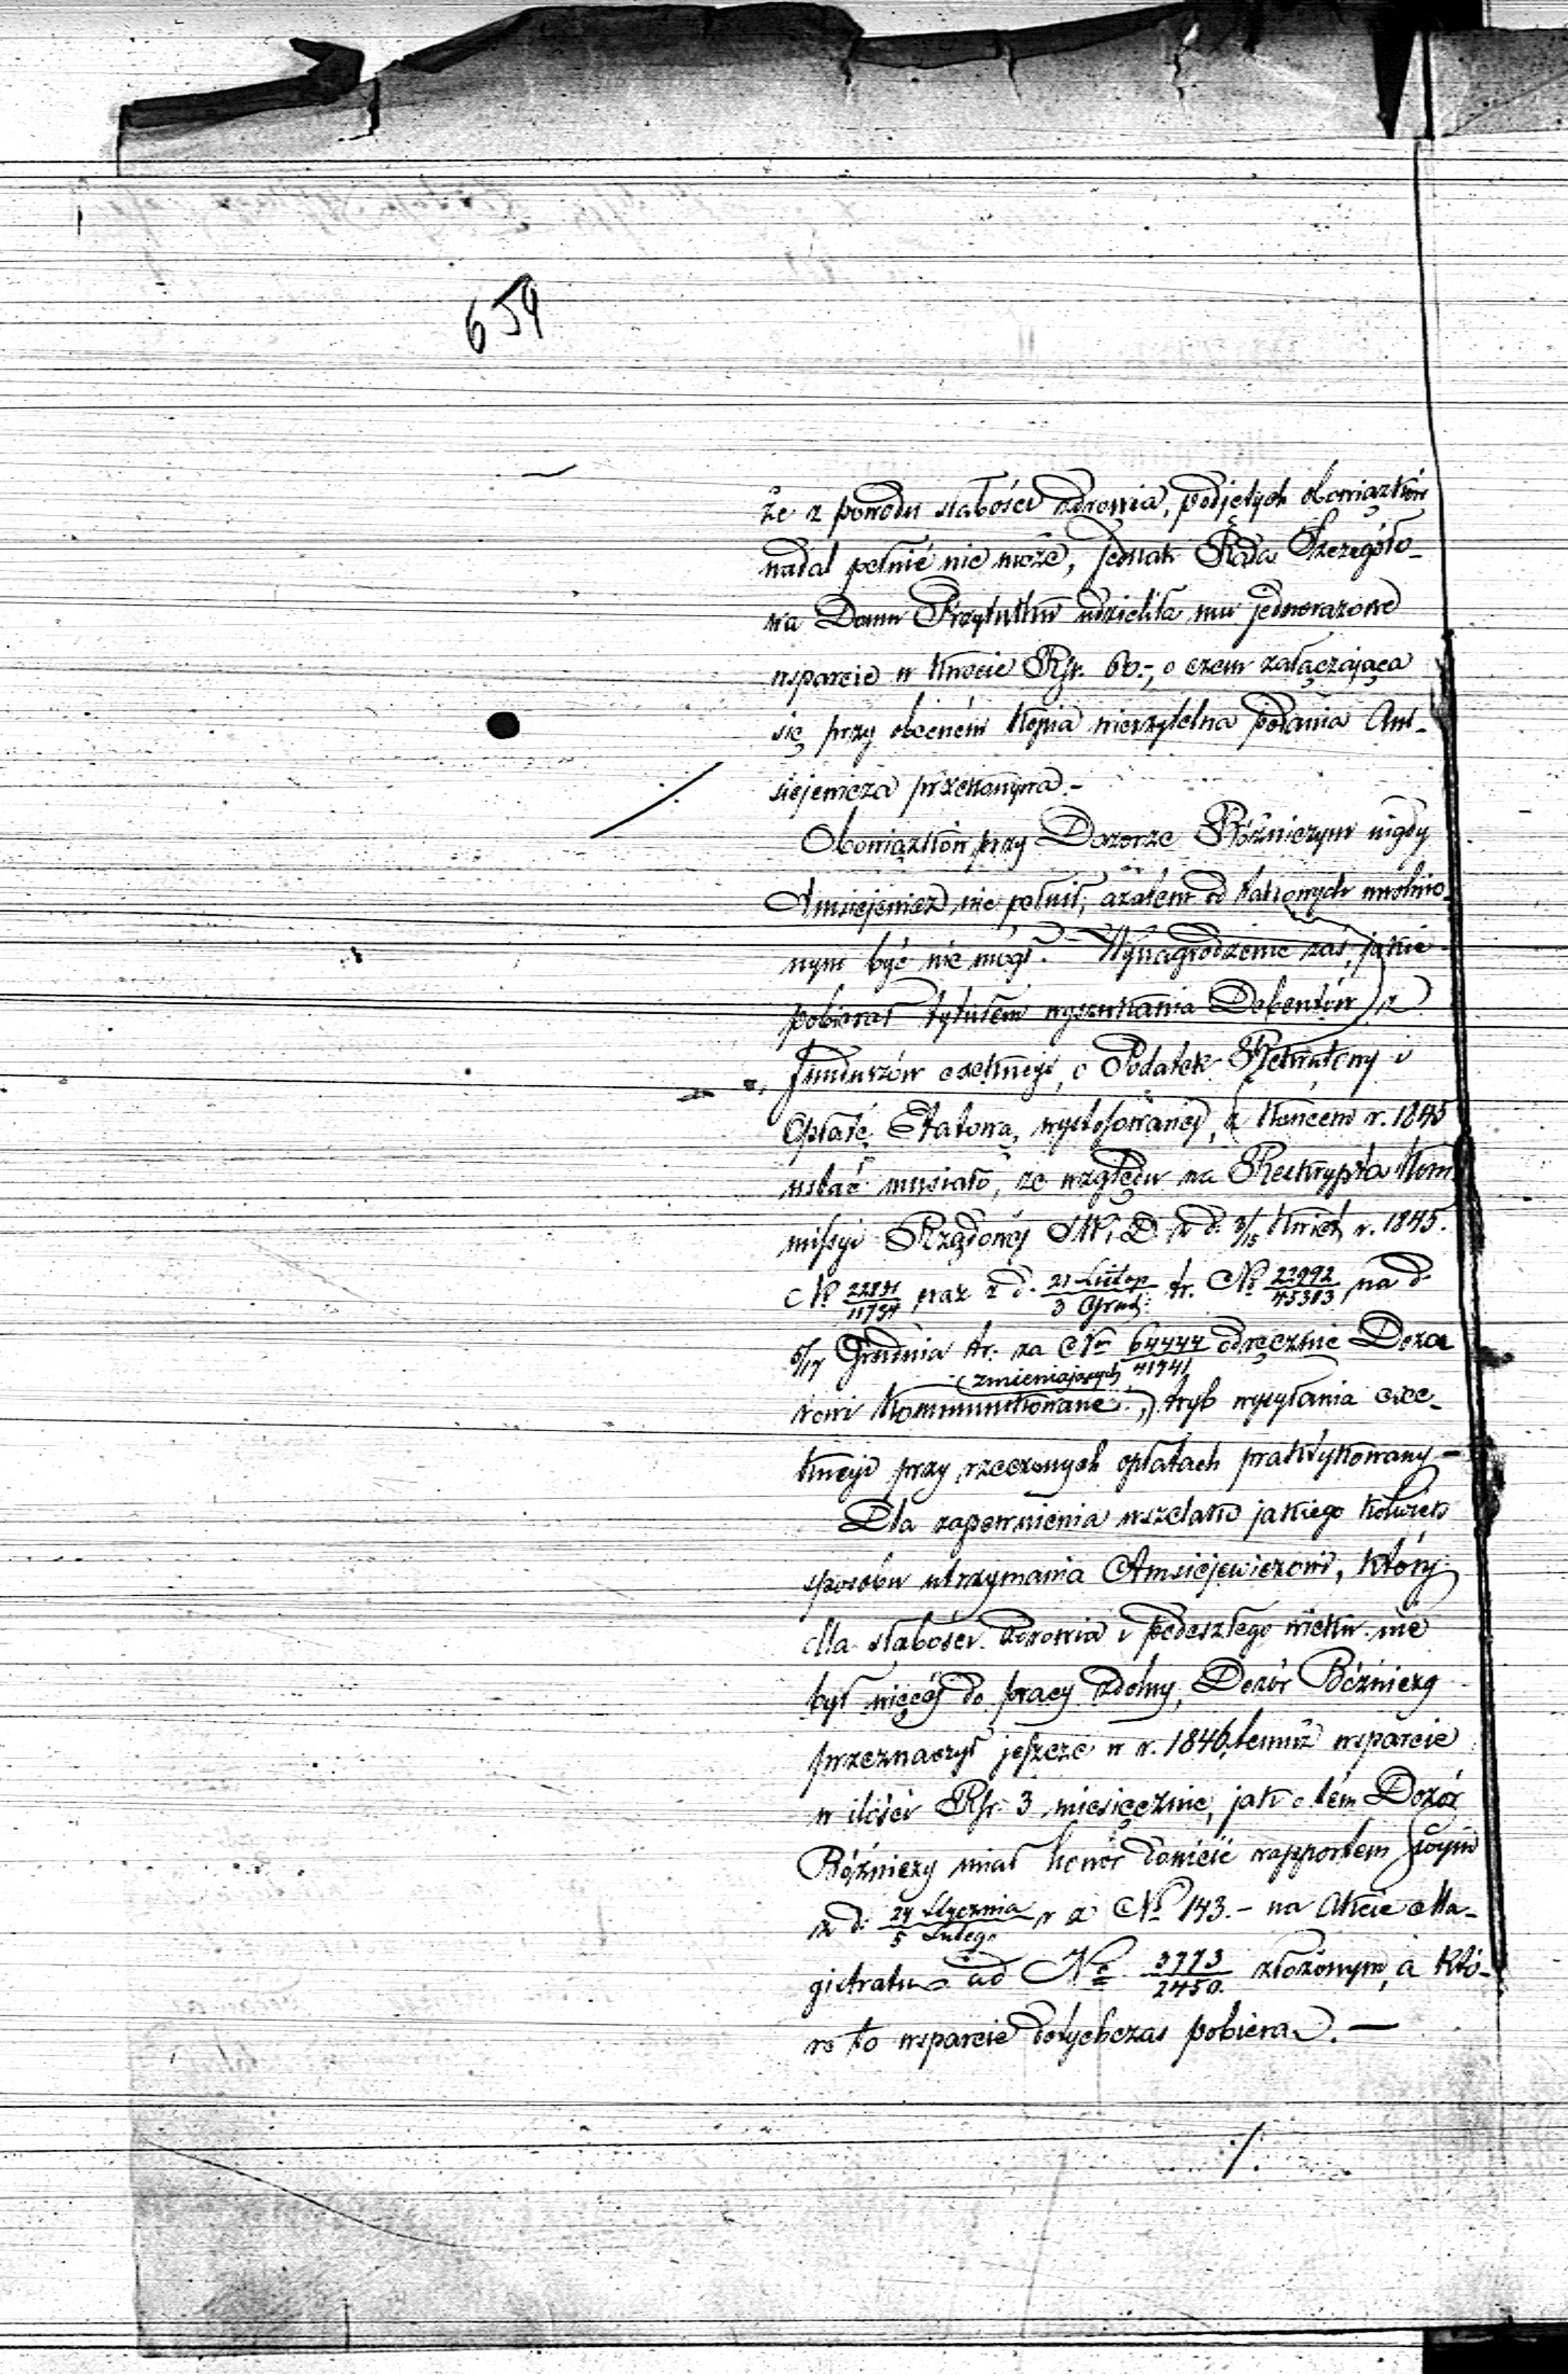 659
że z powodu słabości zdrowia, podjętych obowiązków
nadal pełnić nie może, jednak Rada Szczegóło-
wa Domu Przytułku udzieliła mu jednorazowe
wsparcie w kwocie Rsr. 60.-, o czem załączająca
się przy obecném kopia wierzytelna podania Am-
siejewicza przekonywa.-
Obowiązków przy Dozorze Bóżniczym nigdy
Amsiejewicz nie pełnił, azatem od takowych uwolnio-
nym być nie mógł. - Wynagrodzenie zaś, jakie
pobierał tytułem wyszukania Debentów z
funduszów exekucyi, o Podatek Rekrutowy i
Opłatę Etatową, wystósowanéj, z końcem r. 1845
ustać musiało, ze względu na Reskrypta Kom
missyi Rządowéj S.W.i.D. z d. 3/15 Kwiet r. 1845.
N° 22871/11734 oraz z d. 21 Listop/3 Grud. tr. N° 22992/45383 na d.
5/17 Grudnia tr. za N° 64444/41941 odręcznie Dozo
(zmieniających
rowi kommunikowane:,) tryb wysyłania exe-
kucyi przy rzeczonych opłatach praktykowany -
Dla zapewnienia wszelako jakiego kolwiek
sposobu utrzymania Amsiejewiczowi, który
dla słabości zdrowia i podeszłego wieku nie
był więcéj do pracy zdolny, Dozór Bóżniczy
przeznaczył jeszcze w r. 1846, temuż wsparcie
w ilości Rsr. 3 miesięcznie, jak o tém Dozór
Bóżniczy miał honor donieść rapportem swym
z d. 24 Stycznia/5 Lutego r z N° 143.- na Akcie Ma-
gistratu ad N° 3773/2450. złożonym, a któ-
re to wsparcie dotychczas pobiera. -
./.